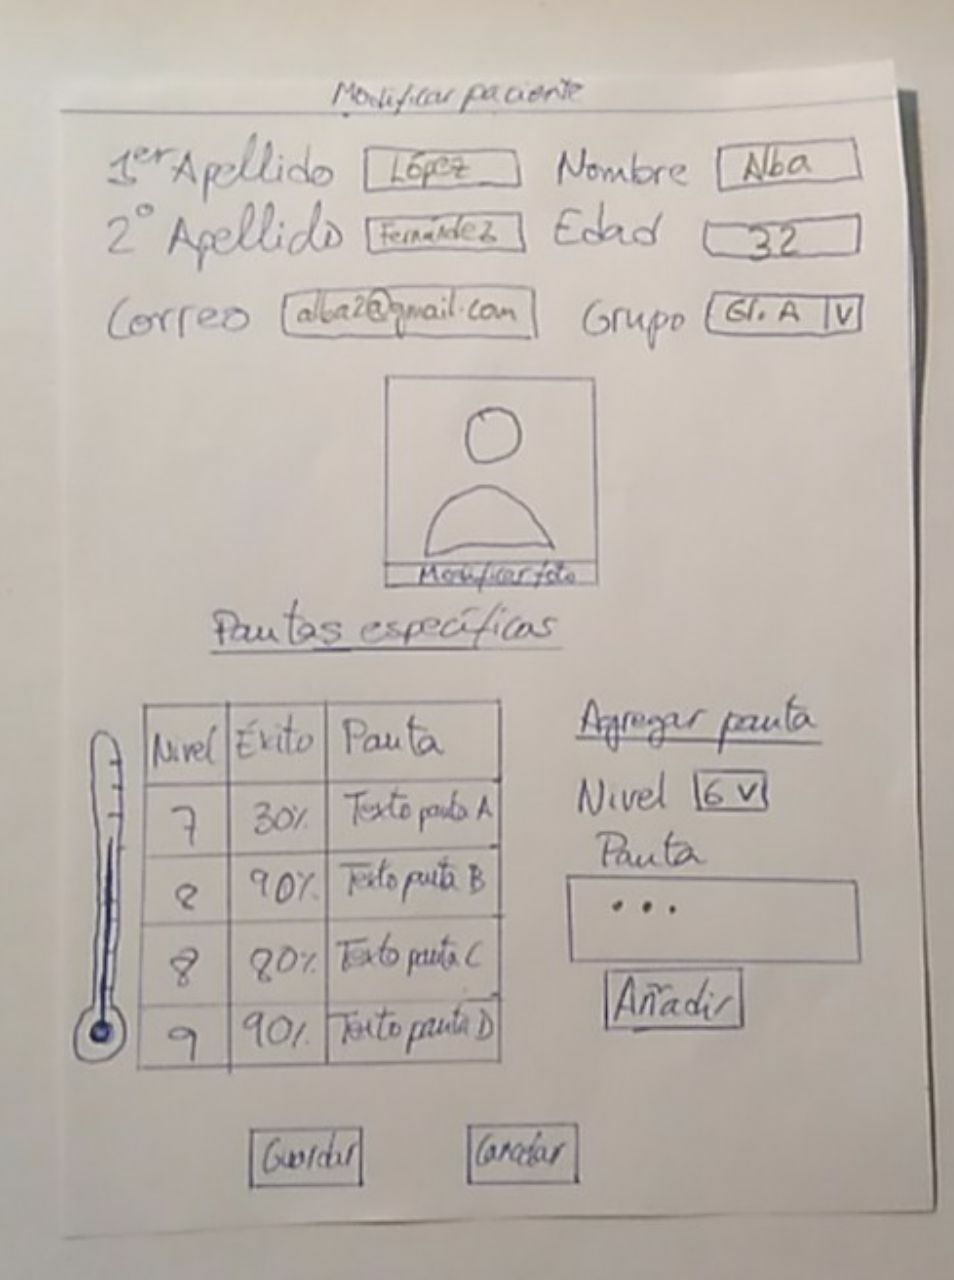 Modificar paciente
1er Apellido López Nombre Alba
2º Apellido Fernández Edad 32
Correo alba2@gmail.com Grupo Gr. A V
Modificar foto
Pautas específicas
Nivel Éxito Pauta
7 30% Texto pauta A
8 90% Texto pauta B
8 80% Texto pauta C
9 90% Texto pauta D
Agregar pauta
Nivel 6 V
Pauta
...
Añadir
Guardar Cancelar